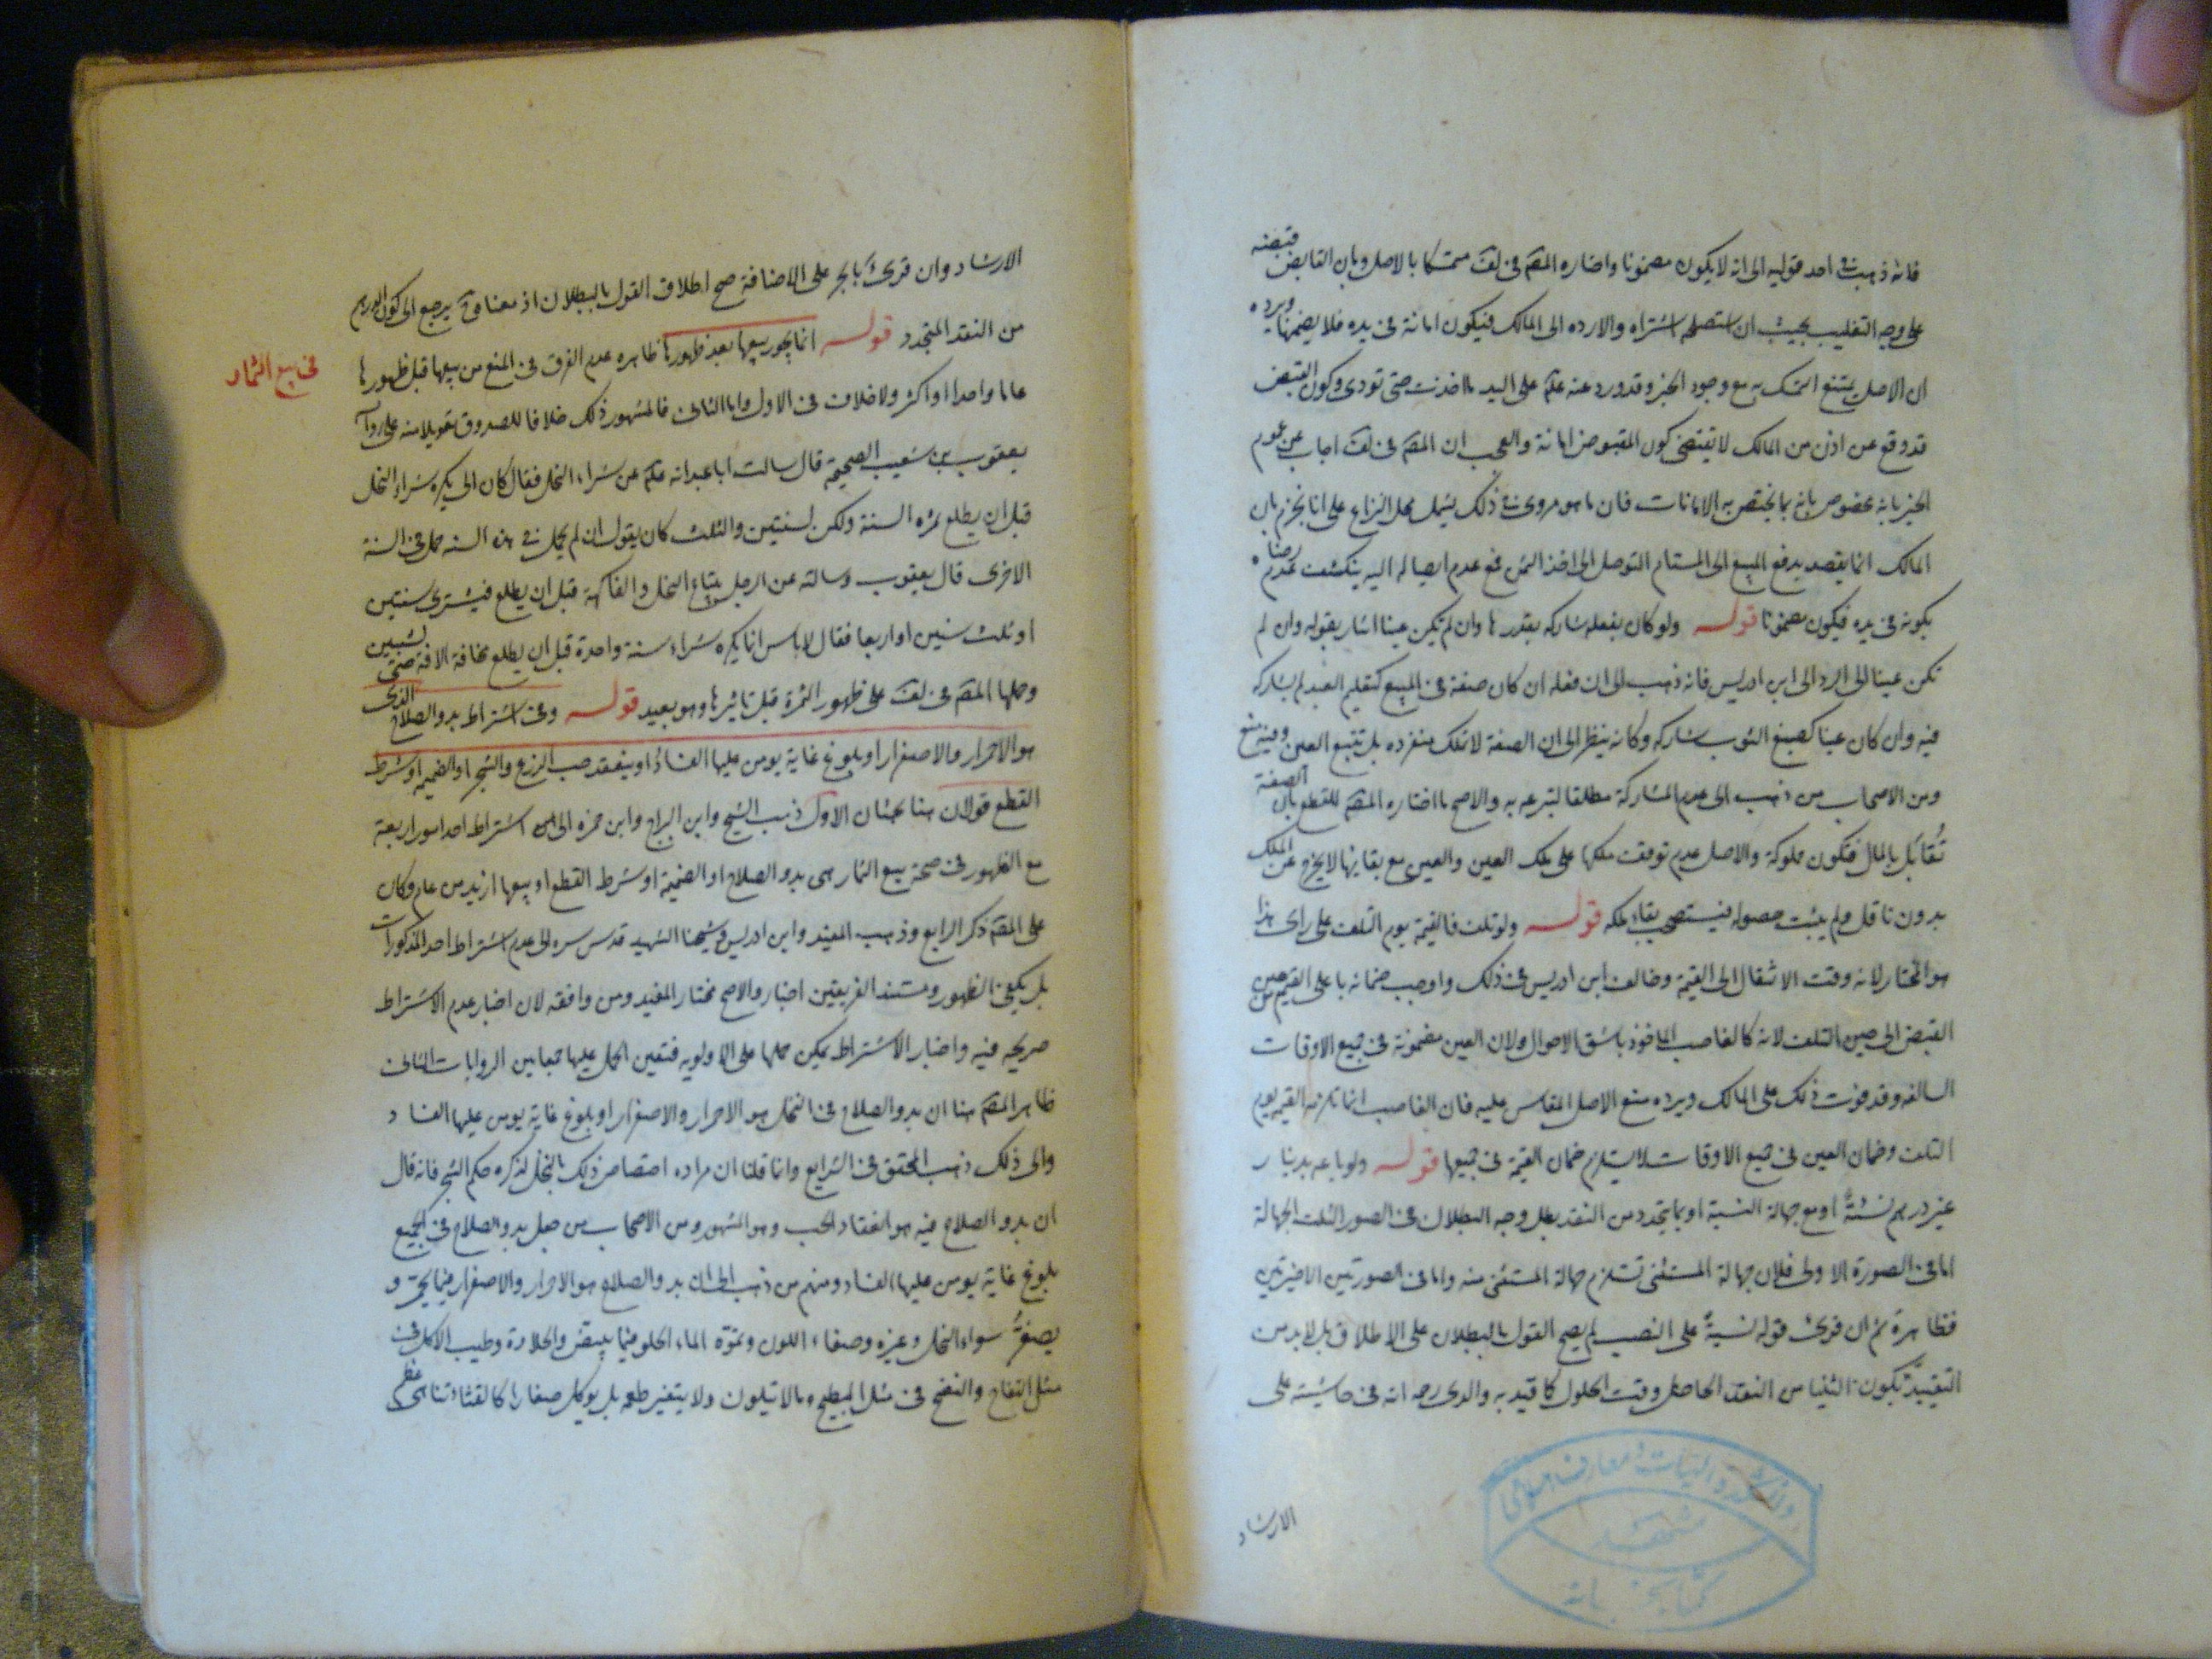 فانه ذهب في احد قوليه الى انه لا يكون مضمونا واختاره المصّ في لف متمسكا بالاصل وبان القابض قبضه
على وجه التغليب بحيث ان استصلحه اشتراه والا رده الى المالك فيكون امانة في يده فلا يضمنها ويرده
ان الاصل يمتنع التمسك به مع وجود الخبر وقد ورد عنه عم على اليد ما اخذت حتى تودى وكون القبض
قد وقع عن اذن من المالك لا يقتضي كون المقبوض امانة والعجب ان المصّ في لف اجاب عن عموم
الخبر بانه مخصوص بانه بما يختص به الامانات فان ما هو مروى في ذلك يشمل محل النزاع على انا نجزم بان
المالك انما يقصد بدفع المبيع الى المستام التوصل الى اخذ الثمن فمع عدم ايصاله اليه ينكشف عدم رضاه
بكونه في يده فيكون مضمونا قوله ولو كان بفعله شاركه بقدرها وان لم تكن عينا اشار بقوله وان لم
تكن عينا الى الرد الى ابن ادريس فانه ذهب الى ان فعله ان كان صفة في المبيع كتعليم العبد لم يشاركه
فيه وان كان عينا كصبغ الثوب شاركه وكانه ينظر الى ان الصفة لا تملك منفرده بل تتبع العين وفيه منع
ومن الاصحاب من ذهب الى عدم المشاركة مطلقا لتبرعه به والاصح ما اختاره المصّ للقطع بان الصفة
تُقابَل بالمال فتكون مملوكة والاصل عدم توقف ملكها على ملك العين والعين مع بقائها لا يخرج عن الملك
بدون ناقل ولم يثبت حصوله فيستصحب بقاء ملكه قوله ولو تلف فالقيمة يوم التلف على راى هذا
هو المختار لانه وقت الانتقال الى القيمة وخالف ابن ادريس في ذلك واوجب ضمانه باعلى القيم من حين
القبض الى حين التلف لانه كالغاصب الماخوذ باشق الاحوال ولان العين مضمونة في جميع الاوقات
السالفه وقد فوت ذلك على المالك ويرده منع الاصل المقاس عليه فان الغاصب انما تلزمه القيمة يوم
التلف وضمان العين في جميع الاوقات لا يستلزم ضمان القيمة في جميعها قوله ولو باعه بدينار
غير درهم نسئة او مع جهالة النسبة او بما يتجدد من النقد بطل وجه البطلان في الصور الثلث الجهالة
اما في الصورة الاولى فلان جهالة المستثنى تستلزم جهالة المستثنى منه واما في الصورتين الاخيرتين
فظاهرة ثم ان قرئ قوله نسيةً على النصب لم يصح القول بالبطلان على الاطلاق بل لابد من
التقييد بكون الثنيا من النقد الحاصل وقت الحلول كما قيد به والدي رحمه الله في حاشيته على
الارشاد
الارشاد وان قرئ بالجر على الاضافة صح اطلاق القول بالبطلان اذ معناه ح يرجع الى كون الدرهم
من النقد المتجدد قوله انما يجوز بيعها بعد ظهورها ظاهره عدم الفرق في المنع من بيعها قبل ظهورها
في بيع الثمار
عاما واحدا او اكثر ولا خلاف في الاول واما الثاني فالمشهور ذلك خلافا للصدوق تعويلا منه على رواية
يعقوب بن شعيب الصحيحة قال سالت ابا عبد الله عم عن شراء النخل فقال كان ابى يكره شراء النخل
قبل ان يطلع ثمره السنة ولكن لسنتين والثلث كان يقول ان لم يحمل في هذه السنه حمل في السنة
الاخرى قال يعقوب وسالته عن الرجل يبتاع النخل والفاكهة قبل ان يطلع فيشترى سنتين
او ثلث سنين او اربعا فقال لا باس انما يكره شراء سنة واحدة قبل ان يطلع مخافة الافة حتى يستبين
وحملها المصّ في لف على ظهور الثمرة قبل تابيرها وهو بعيد قوله وفي اشتراط بدو الصلاح الذى
هو الاحمرار والاصفرار او بلوغ غاية يومن عليها الفساد او ينعقد حب الزرع والشجر او الضميمة او شرط
القطع قولان هنا بحثان الاول ذهب الشيخ وابن البراج وابن حمزه الى اشتراط احد امور اربعة
مع الظهور في صحة بيع الثمار هى بدو الصلاح او الضميمة او شرط القطع او بيعها ازيد من عام وكان
على المصّ ذكر الرابع وذهب المفيد وابن ادريس وشيخنا الشهيد قدس سره الى عدم اشتراط احد المذكورات
بل يكفي الظهور ومستند الفريقين اخبار والاصح مختار المفيد ومن وافقه لان اخبار عدم الاشتراط
صريحه فيه واخبار الاشتراط يمكن حملها على الاولويه فتعين الحمل عليها جمعا بين الروايات الثانى
ظاهر المصّ هنا ان بدو الصلاح في النخل هو الاحمرار والاصفرار او بلوغ غاية يومن عليها الفساد
والى ذلك ذهب المحقق في الشرايع وانما قلنا ان مراده اختصاص ذلك بالنخل لذكره حكم الشجر فانه قال
ان بدو الصلاح فيه هو انعقاد الحب وهو المشهور ومن الاصحاب من جعل بدو الصلاح في الجميع
بلوغ غاية يومن عليها الفساد ومنهم من ذهب الى ان بدو الصلاح هو الاحمرار والاصفرار فيما يحمر و
يصفرّ سواء النخل وغيره وصفاء اللون وتموّه الماء الحلو فيما يبيض والحلاوة وطيب الاكل في
مثل التفاح والنضج في مثل البطيخ وما لا يتلون ولا يتغير طعمه بل يوكل صغارا كالقثاء تناهى عظمه